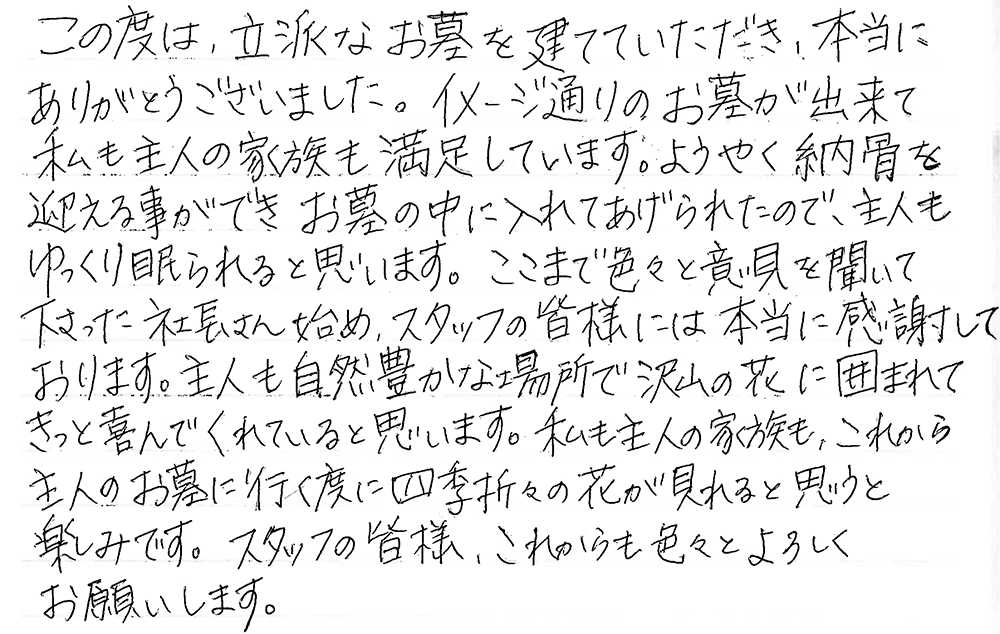 この度は、立派なお墓を建てていただき、本当に
ありがとうございました。イメージ通りのお墓が出来て
私も主人の家族も満足しています。ようやく納骨を
迎える事ができお墓の中に入れてあげられたので、主人も
ゆっくり眠られると思います。ここまで色々と意見を聞いて
下さった社長さん始め、スタッフの皆様には本当に感謝して
おります。主人も自然豊かな場所で沢山の花に囲まれて
きっと喜んでくれていると思います。私も主人の家族も、これから
主人のお墓に行く度に四季折々の花が見れると思うと
楽しみです。スタッフの皆様、これからも色々とよろしく
お願いします。